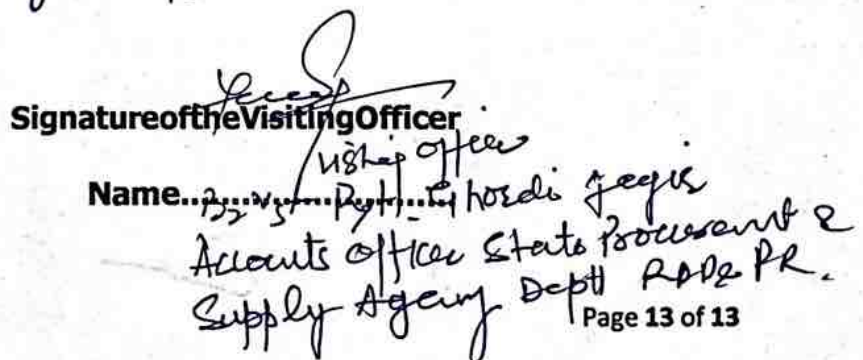 SignatureoftheVisitingOfficer
Visiting Officer
Name.....................
Accounts Officer State Procurement &
Supply Agency Deptt RDD& PR.
Page 13 of 13